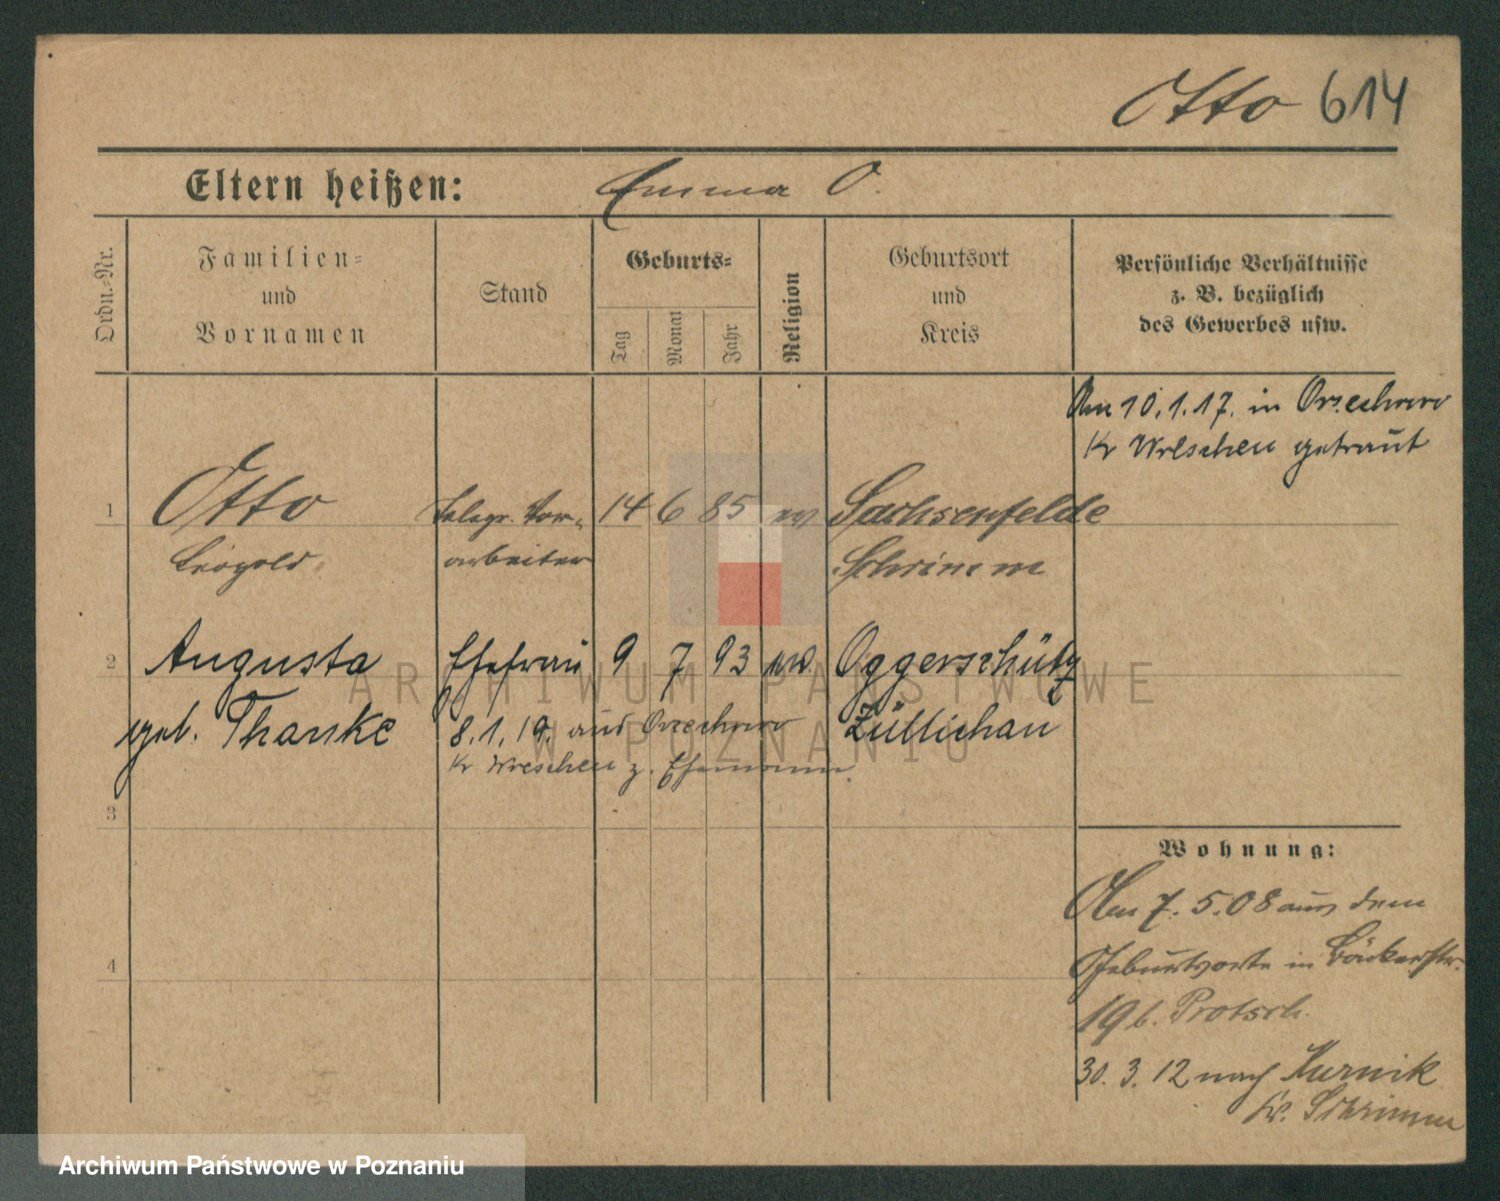 Otto 614
Eltern heißen: Emma O.
Ordn.-Nr.
Familien-
und
Vornamen
Stand
Geburts-
Tag
Monat
Jahr
Religion
Geburtsort
und
Kreis
Persönliche Verhältnisse
z. B. bezüglich
des Gewerbes usw.
Am 10.1.17. in Orzechowo
Kr Wreschen getraut
1 Otto Telegr. Vor- 14 6 85 ev Sachsenfelde
Leopold. arbeiter Schrimm
2 Augusta Ehefrau 9 7 93 ev. Oggerschütz
geb. Thanke 8.1.19. aus Orzechowo Züllichau
Kr Wreschen z. Ehemann.
3
Wohnung:
Am 7.5.08 aus dem
Geburtsorte in Bäckerstr.
4
19 b. Protsch.
30.3.12 nach Kurnik
Kr. Schrimm
ARCHIWUM PAŃSTWOWE
W POZNANIU
Archiwum Państwowe w Poznaniu